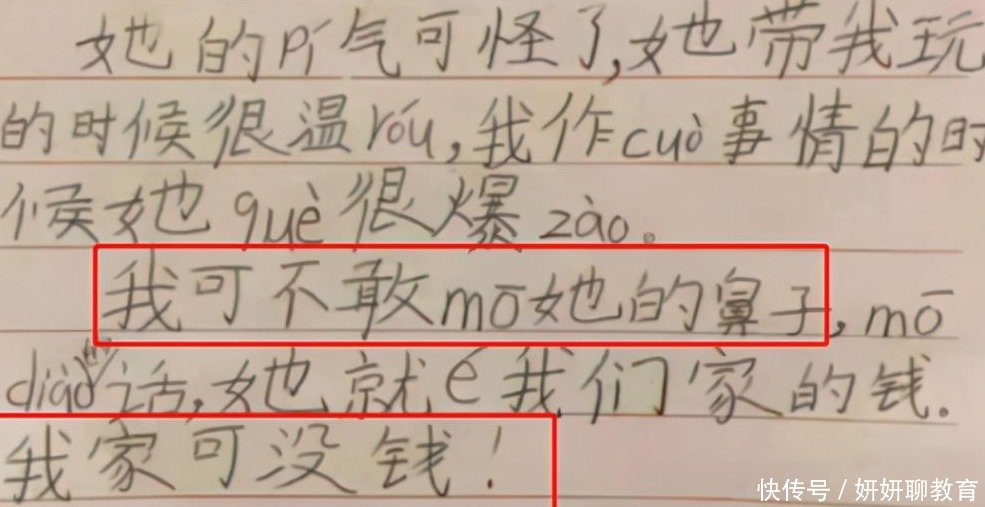 她的pí气可怪了,她带我玩
的时候很温róu,我作cuò事情的时
候她què很爆zào。
我可不敢mō她的鼻子,mō
diào的话,她就é我们家的钱.
我家可没钱!
快传号/妍妍聊教育